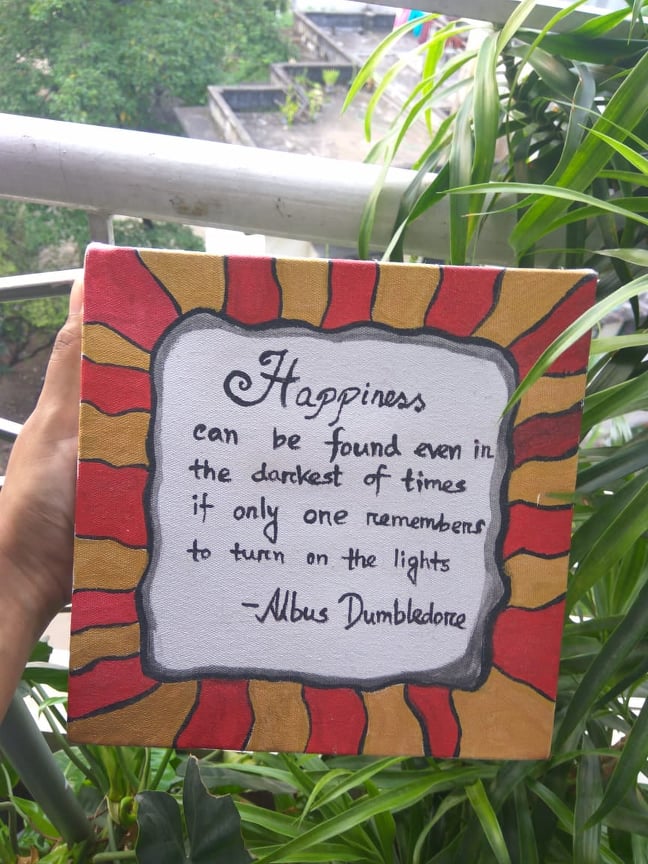 Happiness
can be found even in
the darkest of times
if only one remembers
to turn on the lights
-Albus Dumbledore